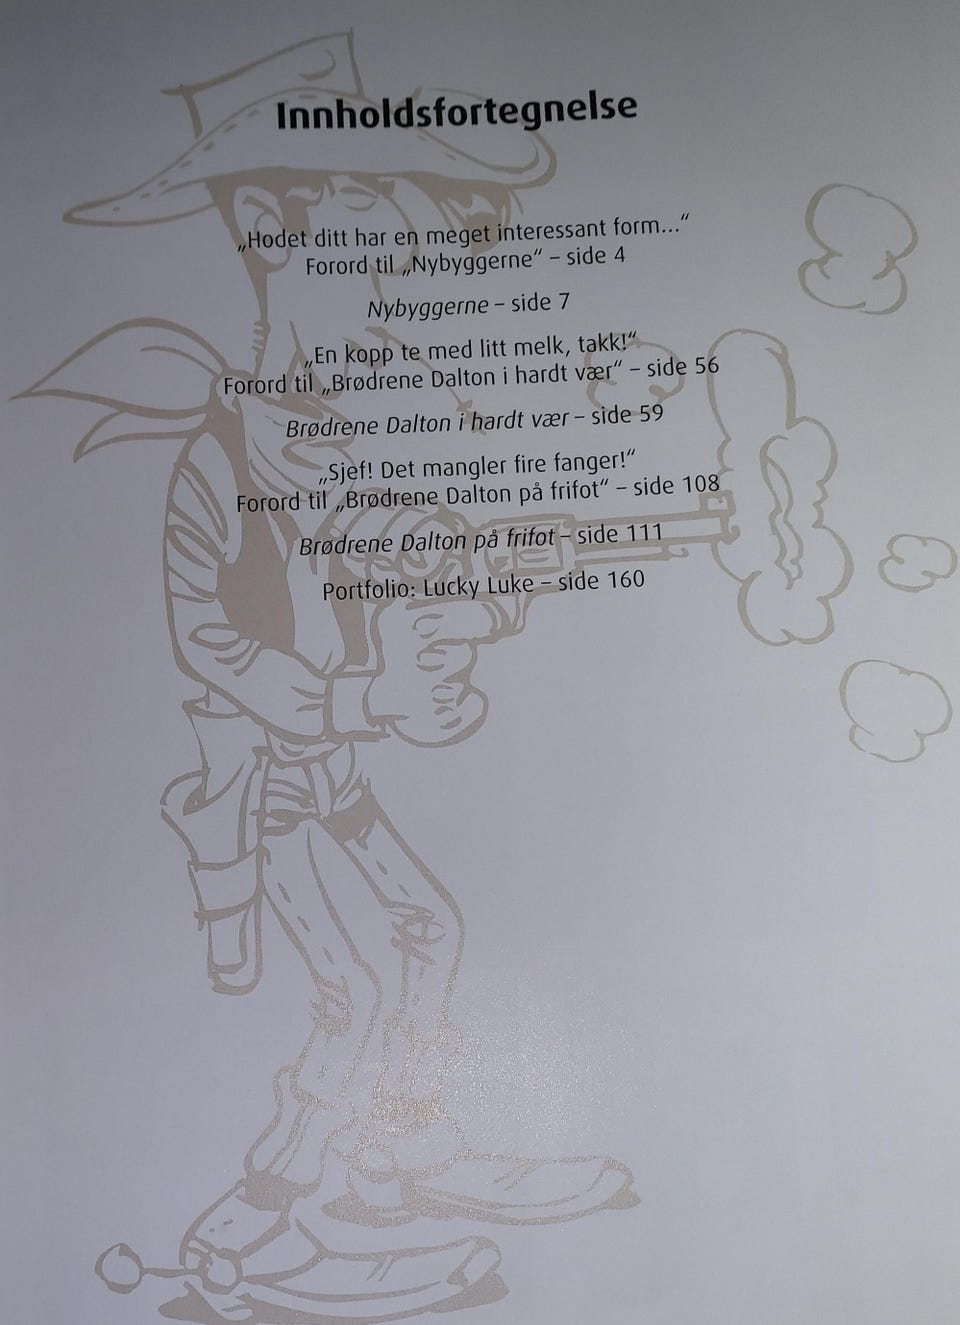 Innholdsfortegnelse
„Hodet ditt har en meget interessant form...“
Forord til „Nybyggerne“ – side 4
Nybyggerne – side 7
„En kopp te med litt melk, takk!“
Forord til „Brødrene Dalton i hardt vær“ – side 56
Brødrene Dalton i hardt vær – side 59
„Sjef! Det mangler fire fanger!“
Forord til „Brødrene Dalton på frifot“ – side 108
Brødrene Dalton på frifot – side 111
Portfolio: Lucky Luke – side 160